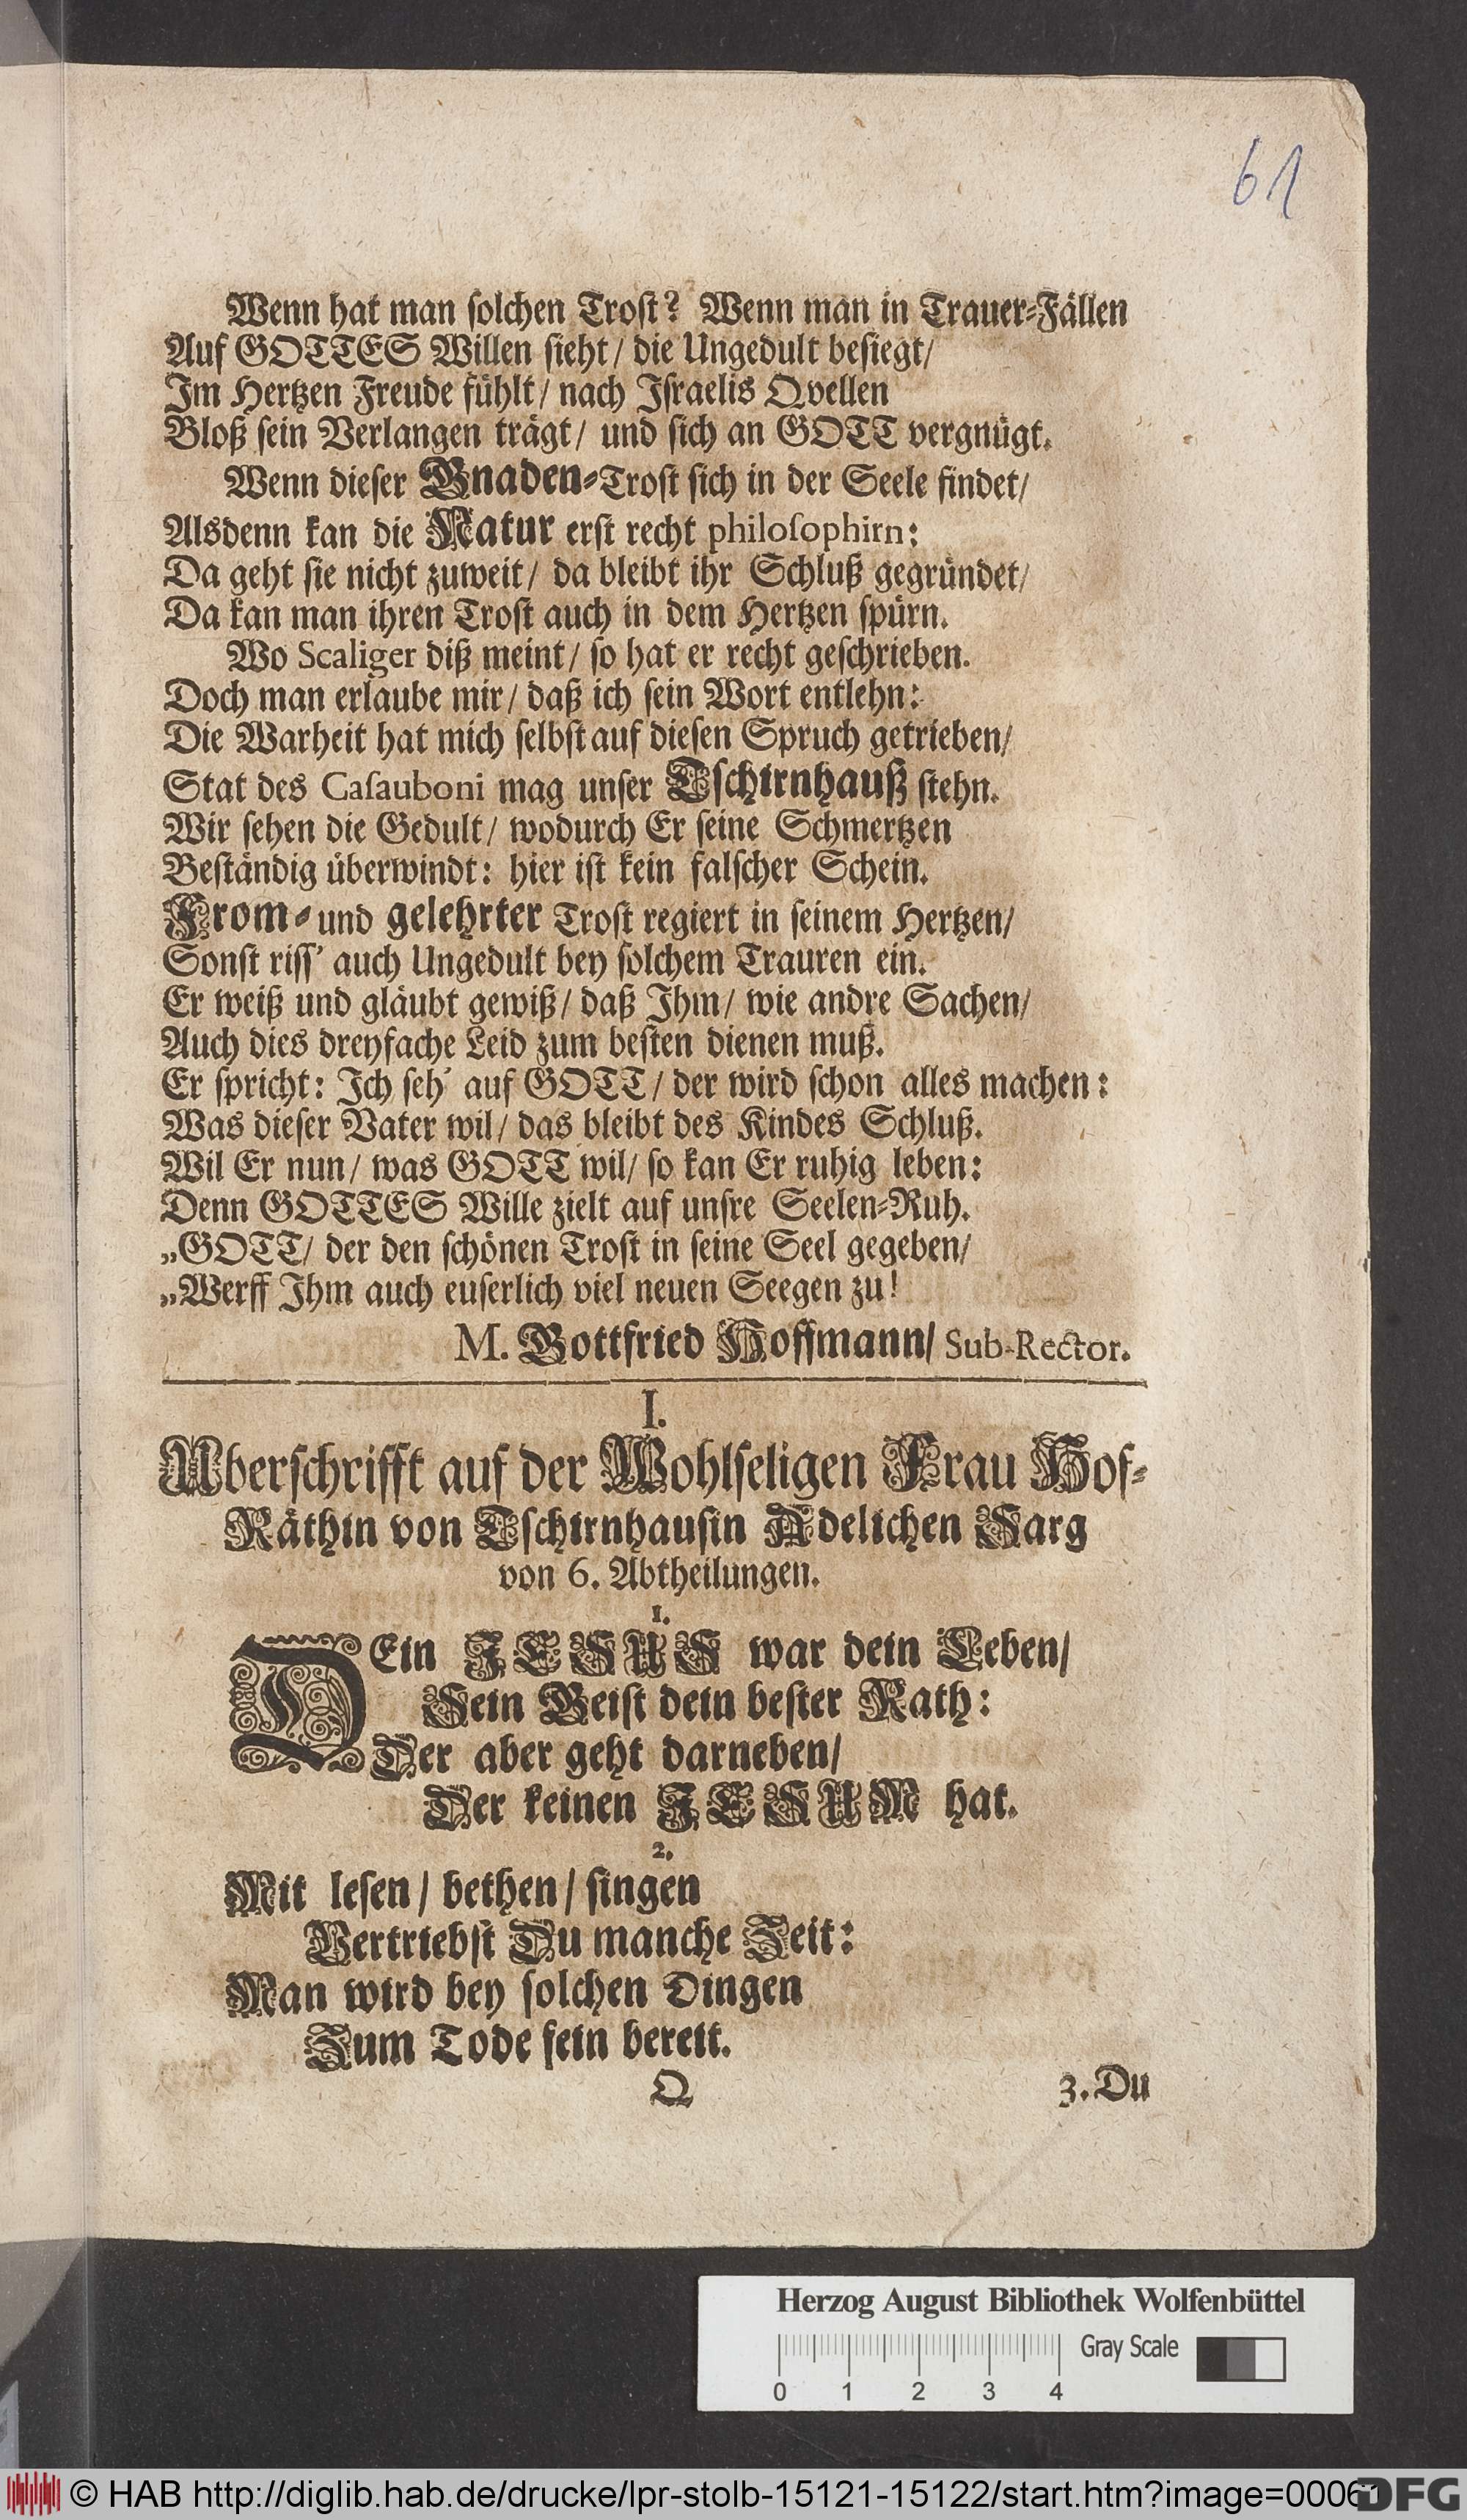 61
Wenn hat man solchen Trost? Wenn man in Trauer-Fällen
Auf GOTTES Willen sieht/ die Ungedult besiegt/
Im Hertzen Freude fühlt/ nach Israelis Qvellen
Bloß sein Verlangen trägt/ und sich an GOTT vergnügt.
Wenn dieser Gnaden-Trost sich in der Seele findet/
Alsdenn kan die Natur erst recht philosophirn:
Da geht sie nicht zuweit/ da bleibt ihr Schluß gegründet/
Da kan man ihren Trost auch in dem Hertzen spürn.
Wo Scaliger diß meint/ so hat er recht geschrieben.
Doch man erlaube mir/ daß ich sein Wort entlehn:
Die Warheit hat mich selbst auf diesen Spruch getrieben/
Stat des Casauboni mag unser Tschirnhauß stehn.
Wir sehen die Gedult/ wodurch Er seine Schmertzen
Beständig überwindt: hier ist kein falscher Schein.
From- und gelehrter Trost regiert in seinem Hertzen/
Sonst riss' auch Ungedult bey solchem Trauren ein.
Er weiß und gläubt gewiß/ daß Ihm/ wie andre Sachen/
Auch dies dreyfache Leid zum besten dienen muß.
Er spricht: Ich seh' auf GOTT/ der wird schon alles machen:
Was dieser Vater wil/ das bleibt des Kindes Schluß.
Wil Er nun/ was GOTT wil/ so kan Er ruhig leben:
Denn GOTTES Wille zielt auf unsre Seelen-Ruh.
„GOTT/ der den schönen Trost in seine Seel gegeben/
„Werff Ihm auch euserlich viel neuen Seegen zu!
M. Gottfried Hoffmann/ Sub-Rector.
I.
Uberschrifft auf der Wohlseligen Frau Hof-
Räthin von Tschirnhausin Adelichen Sarg
von 6. Abtheilungen.
1.
DEin JESUS war dein Leben/
Sein Geist dein bester Rath:
Der aber geht darneben/
Der keinen JESUM hat.
2.
Mit lesen/ bethen/ singen
Vertriebst Du manche Zeit:
Man wird bey solchen Dingen
Zum Tode fein bereit.
Q
3. Du
Herzog August Bibliothek Wolfenbüttel
Gray Scale
0 1 2 3 4
© HAB http://diglib.hab.de/drucke/lpr-stolb-15121-15122/start.htm?image=00061
DFG